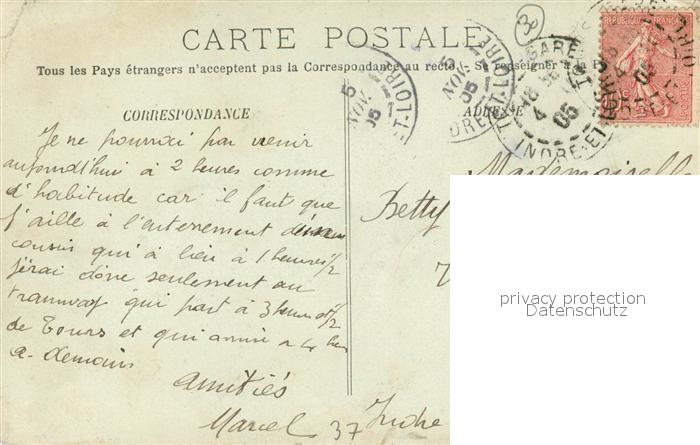 30
CARTE POSTALE
Tous les Pays étrangers n'acceptent pas la Correspondance au recto. - Se renseigner à la P
CORRESPONDANCE
ADRESSE
REPUBLIQUE FRANÇAISE
GARE
18 30
4
05
INDRE-ET-LOIRE
5
NOV.
05
ET-LOIRE
5
NOV.
05
INDRE-ET-LOIRE
Je ne pourrai pas venir
aujourd'hui à 2 heures comme
d'habitude car il faut que
j'aille à l'enterrement d'un
cousin qui a lieu à 1 heures 1/2
j'irai donc seulement au
tramway qui part à 3 heures 1/2
de Tours et qui arrive à 4 heu
a-demain
amitiés
Marcel
Mademoiselle
Betty
37
Indre
privacy protection
Datenschutz